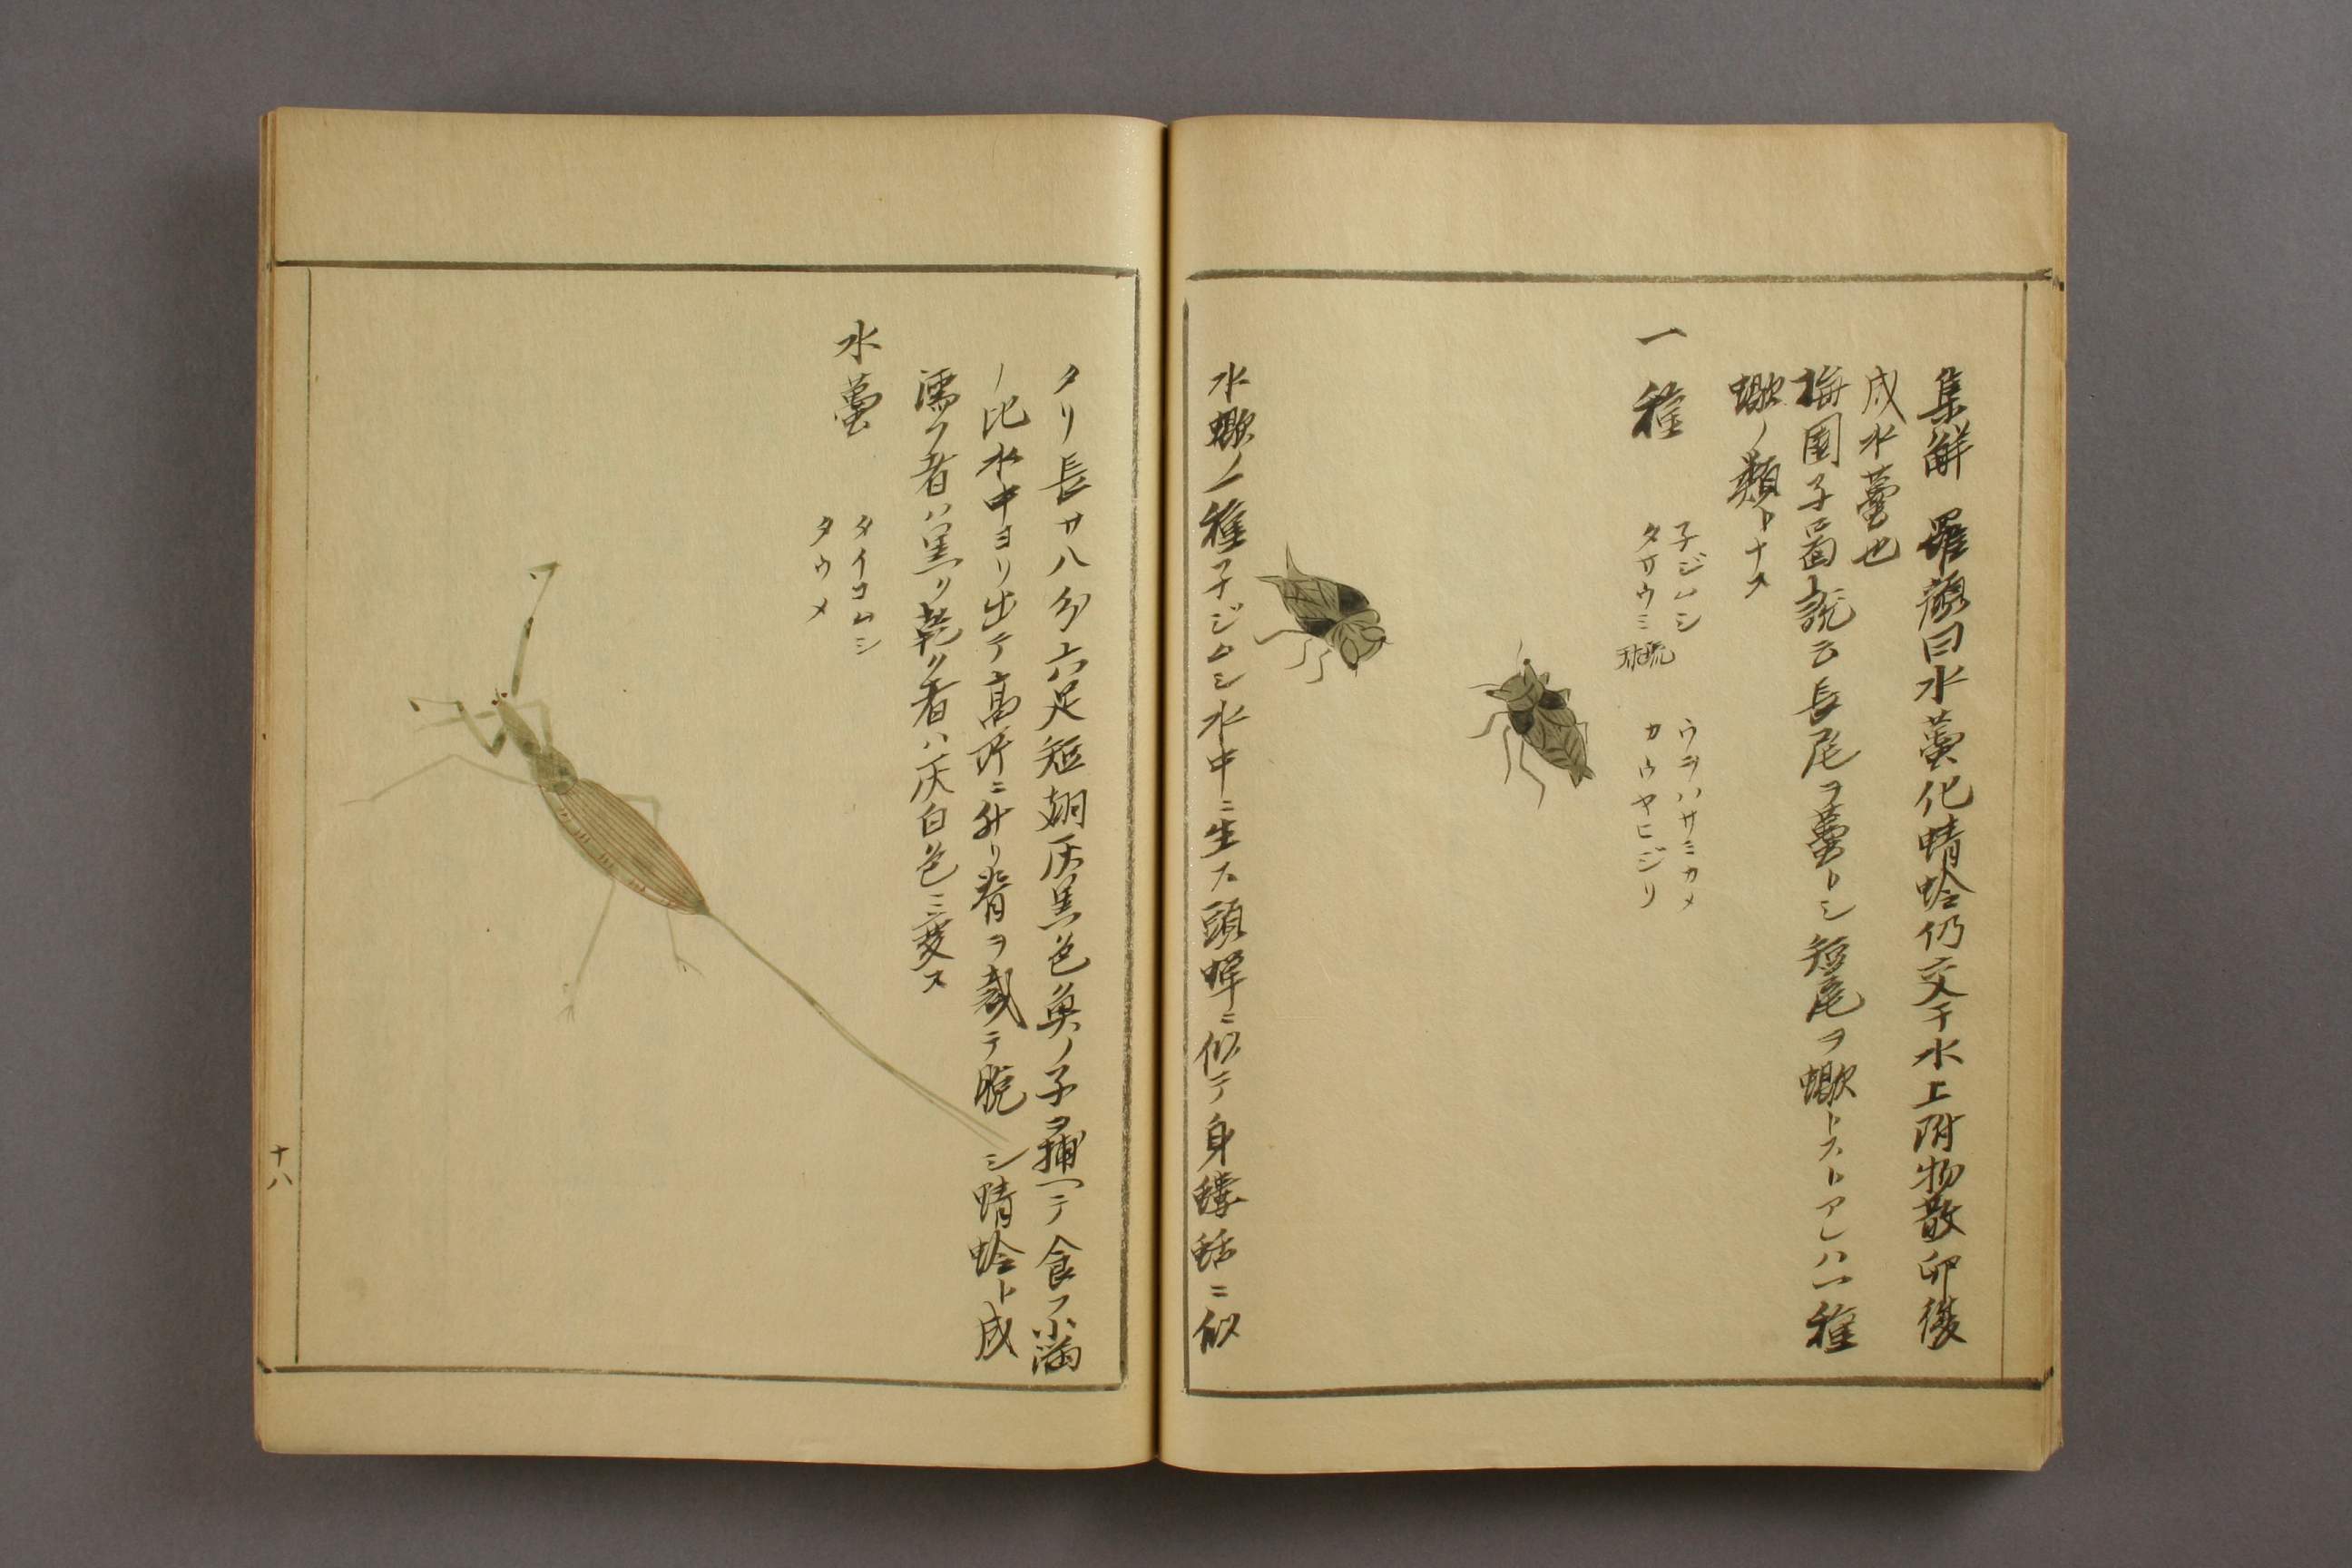 集解 羅願曰水蠆化蜻蛉仍交于水上附物散卵復
成水蠆也
梅園子圖説云長尾ヲ蠆トシ短尾ヲ蠍トストアレハ一種
蠍ノ類トナス
一種
子ジムシ
タサウミ 琉球
ウヲハサミカメ
カウヤヒジリ
水蠍ノ一種子ジムシ水中ニ生ス頭蟬ニ似テ身螻蛄ニ似
タリ長サ八分六足短翅灰黒色魚ノ子ヲ捕ヘテ食フ小満
ノ比水中ヨリ出テ高所ニ升リ背ヲ裁テ脱シ蜻蛉ト成
濡フ者ハ黒ク乾ク者ハ灰白色ニ変ス
水蠆
タイコムシ
タウメ
十八